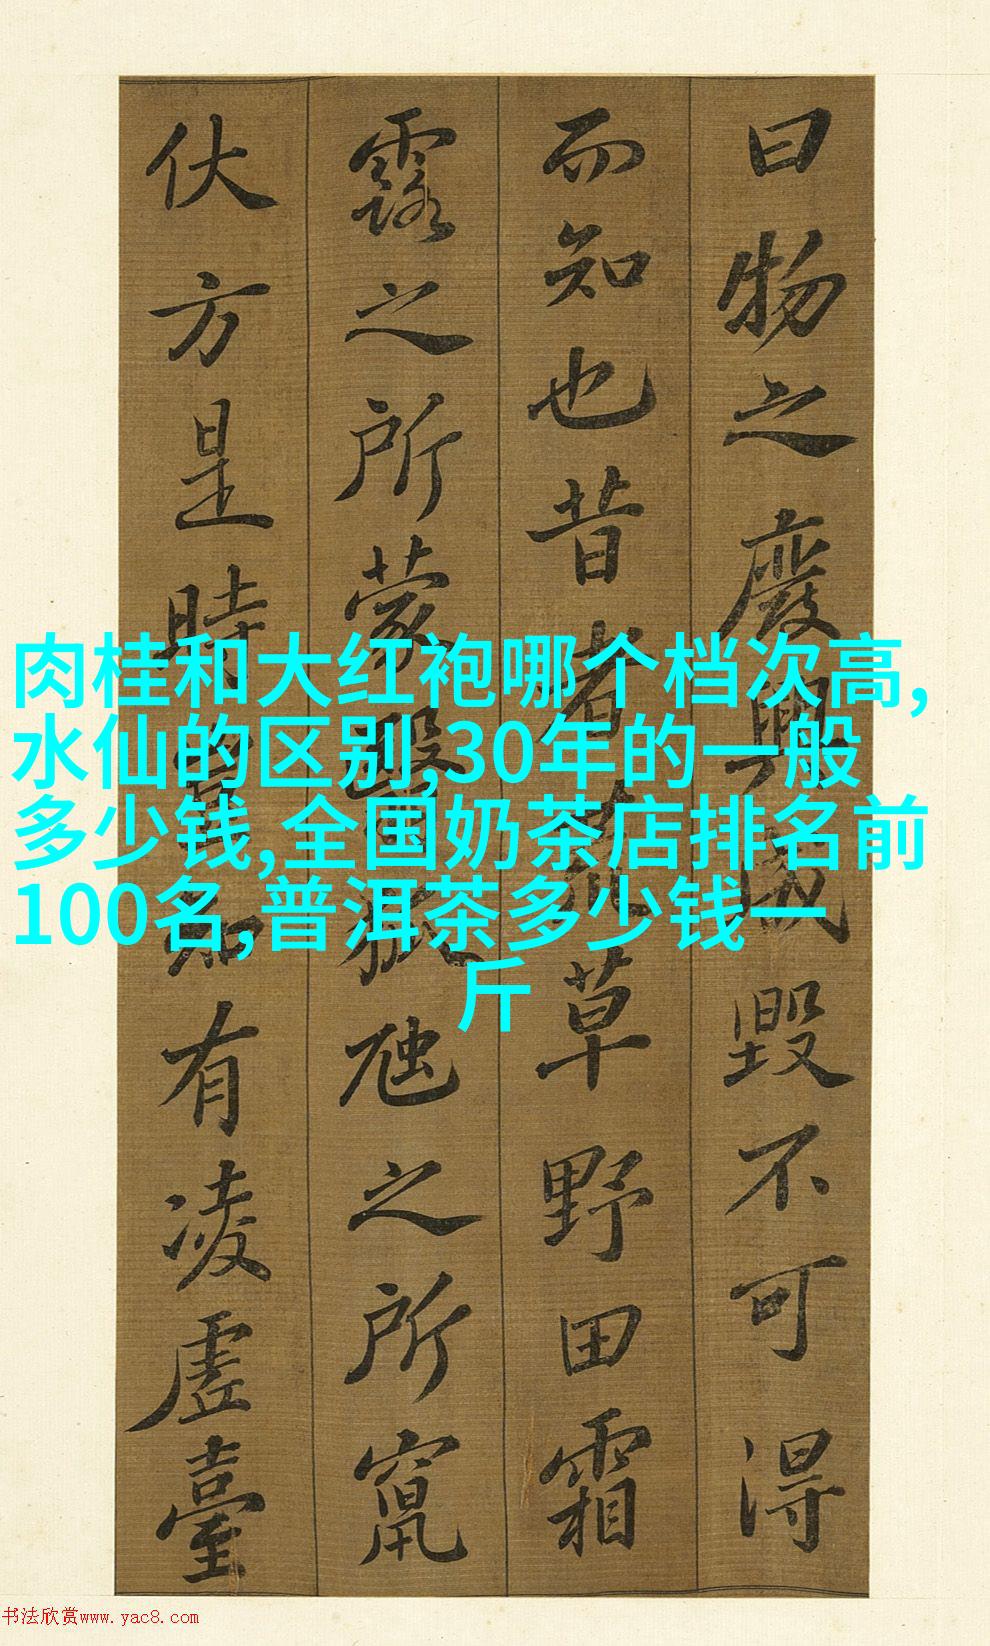 曰物之廢興成毀不可得
而知也昔者荒草野田霜
露之所蒙翳狐虺之所竄
伏方是時豈知有凌虛臺
肉桂和大红袍哪个档次高,
水仙的区别,30年的一般
多少钱,全国奶茶店排名前
100名,普洱茶多少钱一
斤
书法欣赏www.yac8.com